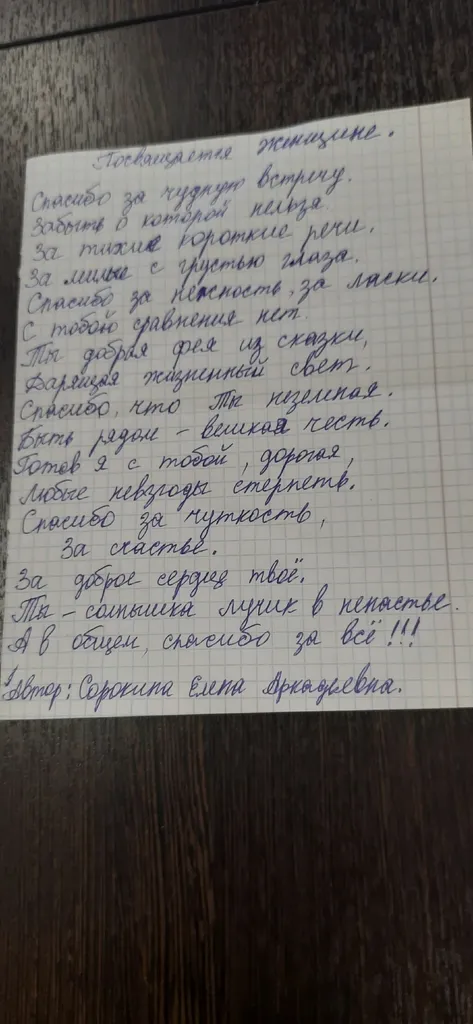 Посвящается женщине.
Спасибо за чудную встречу.
Забыть о которой нельзя.
За тихие короткие речи.
За милые с грустью глаза.
Спасибо за нежность, за ласки.
С тобою сравнения нет.
Ты добрая фея из сказки,
Дарящая жизненный свет.
Спасибо, что Ты неземная.
Быть рядом - великая честь.
Готов я с тобой, дорогая,
Любые невзгоды стерпеть.
Спасибо за чуткость,
За счастье.
За доброе сердце твоё.
Ты - солнышка лучик в ненастье.
А в общем, спасибо за всё!!!
Автор: Сорокина Елена Аркадьевна.